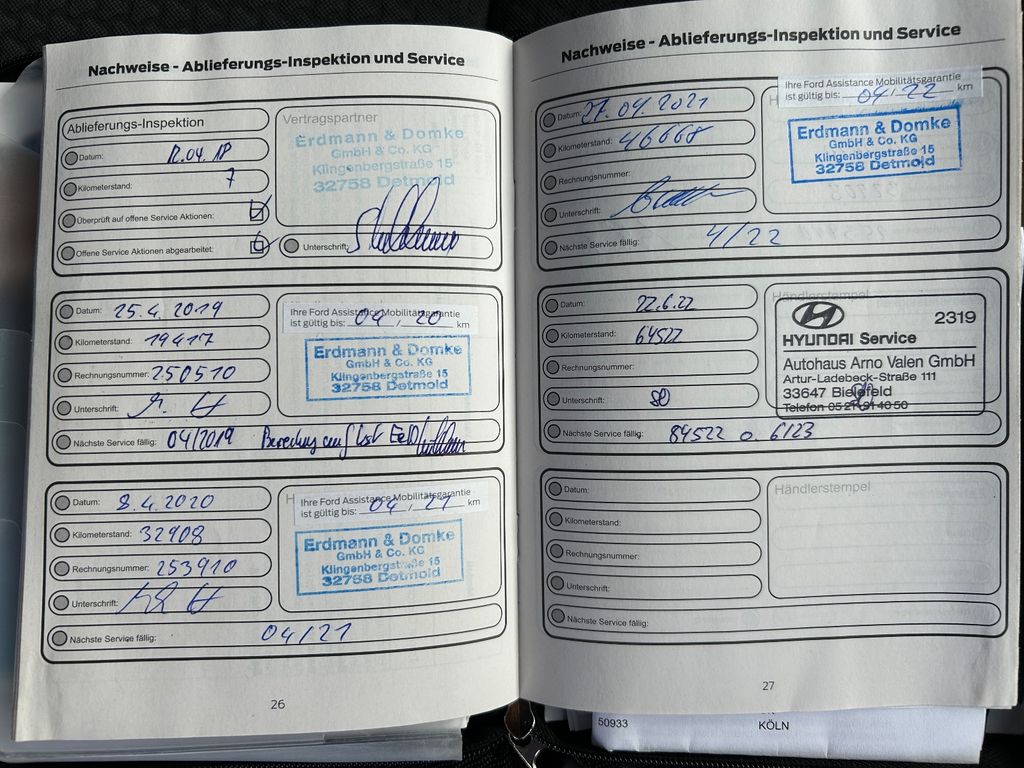 Nachweise - Ablieferungs-Inspektion und Service
Ablieferungs-Inspektion
Datum: 12.04.18
Kilometerstand: 7
Überprüft auf offene Service Aktionen:
Offene Service Aktionen abgearbeitet:
Vertragspartner
Erdmann & Domke
GmbH & Co. KG
Klingenbergstraße 15
32758 Detmold
Unterschrift:
Datum: 25.4.2019
Kilometerstand: 19417
Rechnungsnummer: 250510
Unterschrift:
Nächste Service fällig: 04/2019
Ihre Ford Assistance Mobilitätsgarantie
ist gültig bis: 04, 20 km
Erdmann & Domke
GmbH & Co. KG
Klingenbergstraße 15
32758 Detmold
Datum: 8.4.2020
Kilometerstand: 32908
Rechnungsnummer: 253910
Unterschrift:
Nächste Service fällig: 04/21
Ihre Ford Assistance Mobilitätsgarantie
ist gültig bis: 04, 21 km
Erdmann & Domke
GmbH & Co. KG
Klingenbergstraße 15
32758 Detmold
26
Nachweise - Ablieferungs-Inspektion und Service
Datum: 27.04.2021
Kilometerstand: 46668
Rechnungsnummer:
Unterschrift:
Nächste Service fällig: 4/22
Ihre Ford Assistance Mobilitätsgarantie
ist gültig bis: 04, 22 km
Erdmann & Domke
GmbH & Co. KG
Klingenbergstraße 15
32758 Detmold
Datum: 22.6.22
Kilometerstand: 64522
Rechnungsnummer:
Unterschrift:
Nächste Service fällig: 84522 o. 6/23
Händlerstempel
2319
HYUNDAI Service
Autohaus Arno Valen GmbH
Artur-Ladebeck-Straße 111
33647 Bielefeld
Telefon 05 21/94 40 50
Datum:
Kilometerstand:
Rechnungsnummer:
Unterschrift:
Nächste Service fällig:
Händlerstempel
27
50933
KÖLN